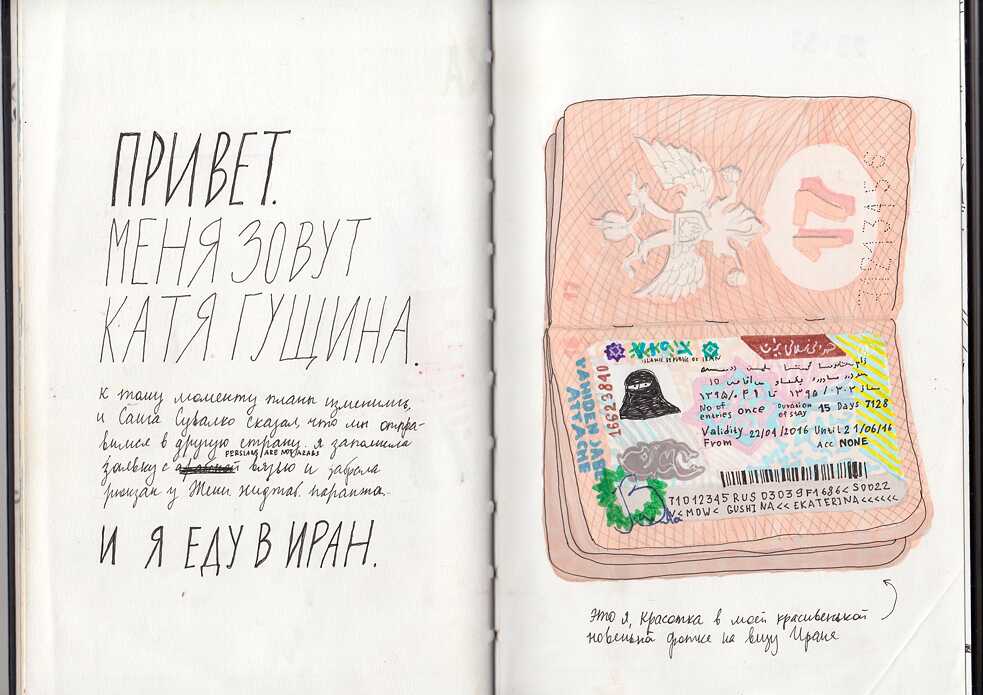 ПРИВЕТ.
МЕНЯ ЗОВУТ
КАТЯ ГУЩИНА.
К тому моменту планы изменились,
и Саша Сувалко сказал, что мы отпра-
вимся в другую страну. Я заполнила
PERSIANS ARE NOT ARABS
заявку с вязью и забрала
рюкзак у Жени
И Я ЕДУ В ИРАН.
17
ISLAMIC REPUBLIC OF IRAN
16623840
No of entries once Duration of stay 15 Days 7128
Validity From 22/01/2016 Until 21/06/16
Acc NONE
T1012345RUS03039F1686<SOO22
V<MOW< GUSHINA<< EKATERINA<<<<<<
Это я, красотка в моей красивенькой
новенькой фотке на визу Ирана